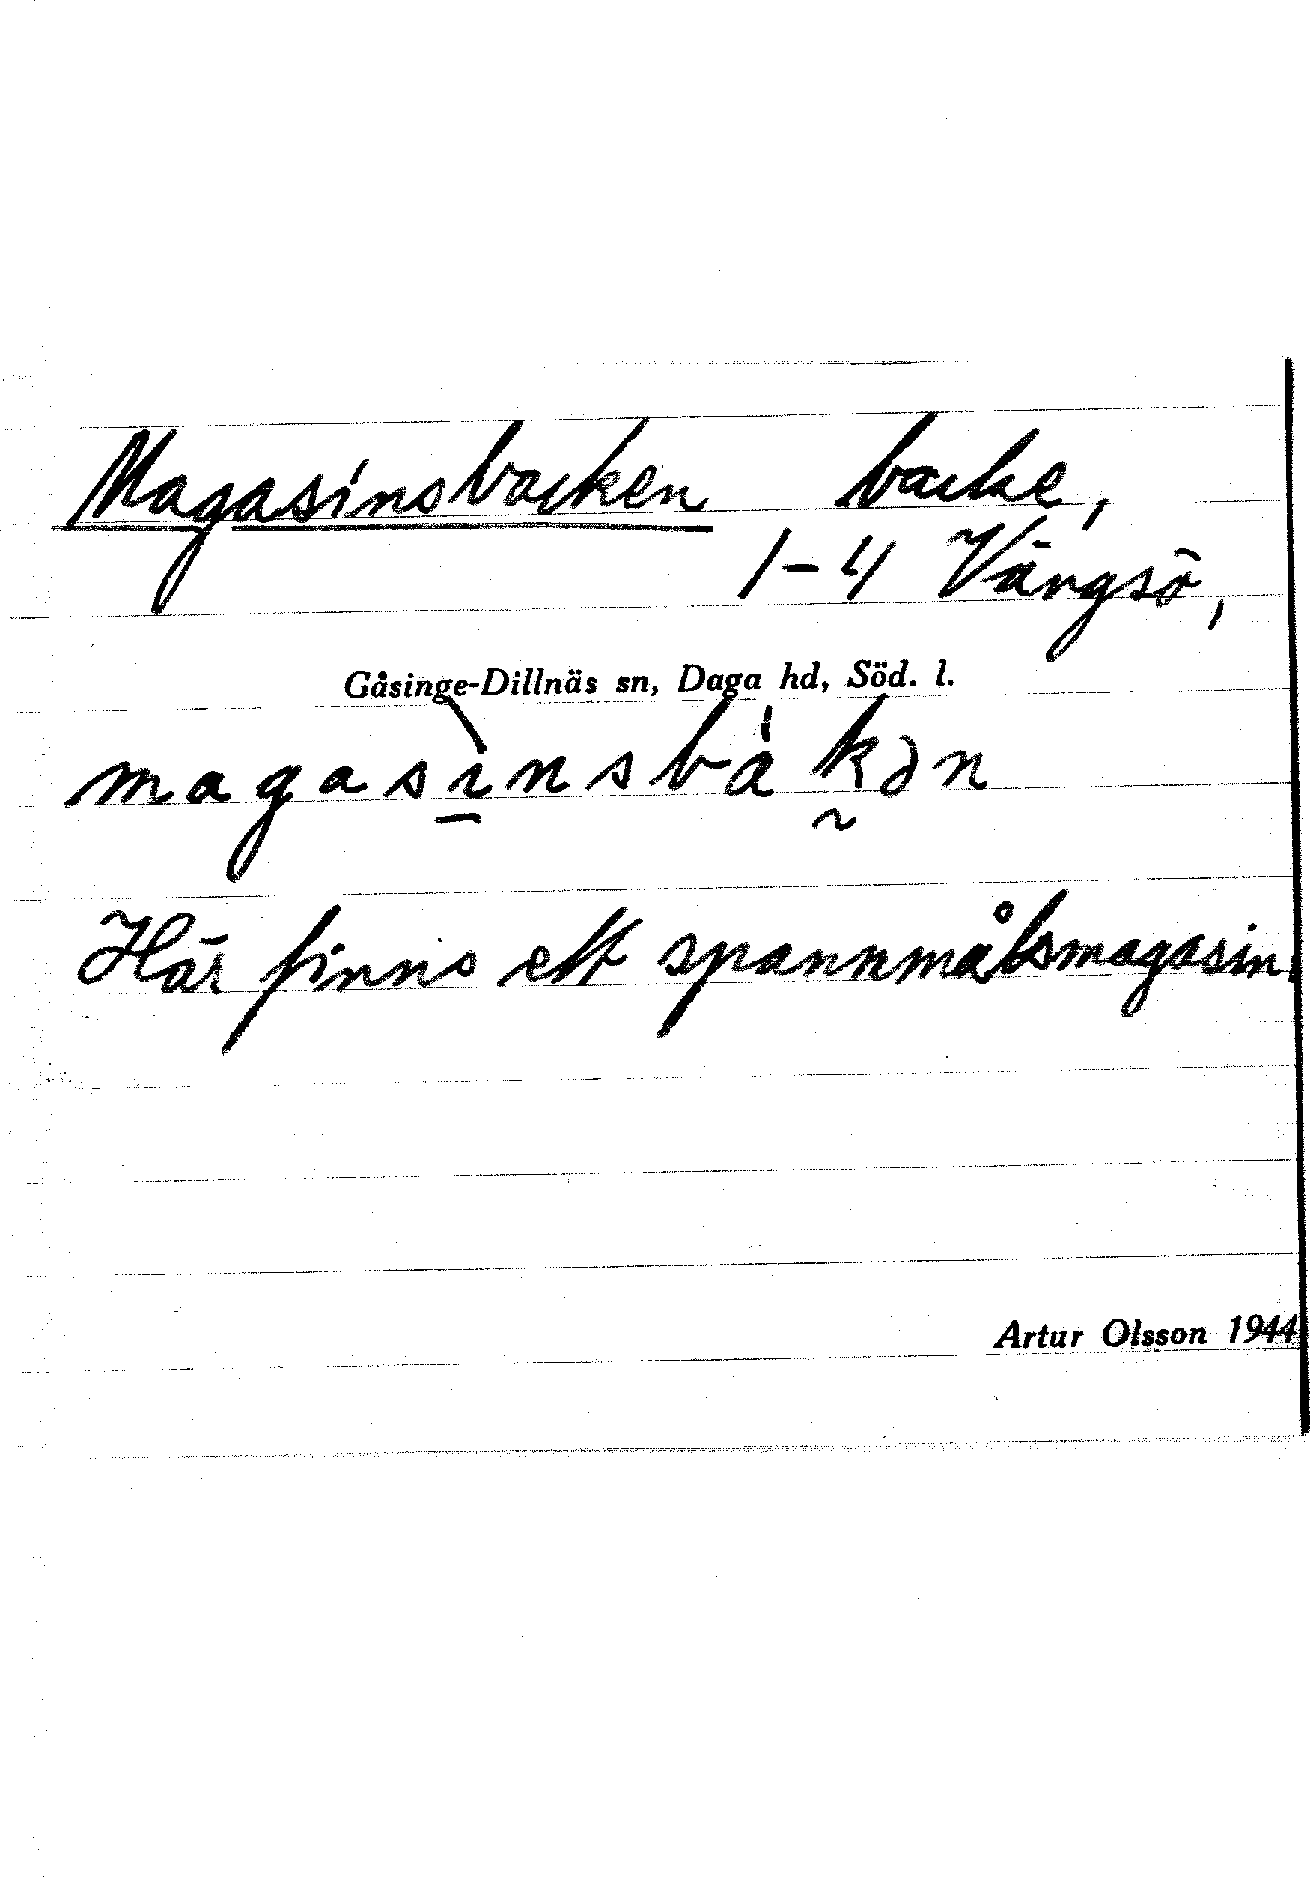 Magasinsbacken backe,
1-4 Vängsö,
Gåsinge-Dillnäs sn, Daga hd, Söd. l.
magasì̱nsbá k̰ən
Här finns ett spannmålsmagasin.
Artur Olsson 1944